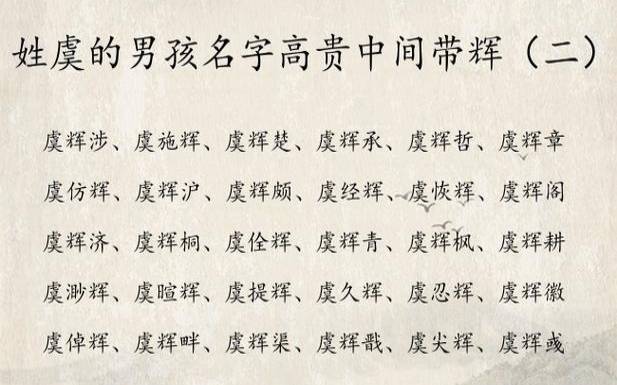 姓虞的男孩名字高贵中间带辉（二）
虞辉涉、虞施辉、虞辉楚、虞辉承、虞辉哲、虞辉章
虞仿辉、虞辉沪、虞辉颇、虞经辉、虞恢辉、虞辉阁
虞辉济、虞辉桐、虞佺辉、虞辉青、虞辉枫、虞辉耕
虞渺辉、虞暄辉、虞提辉、虞久辉、虞忍辉、虞辉徽
虞倬辉、虞辉畔、虞辉渠、虞辉戬、虞尖辉、虞辉彧